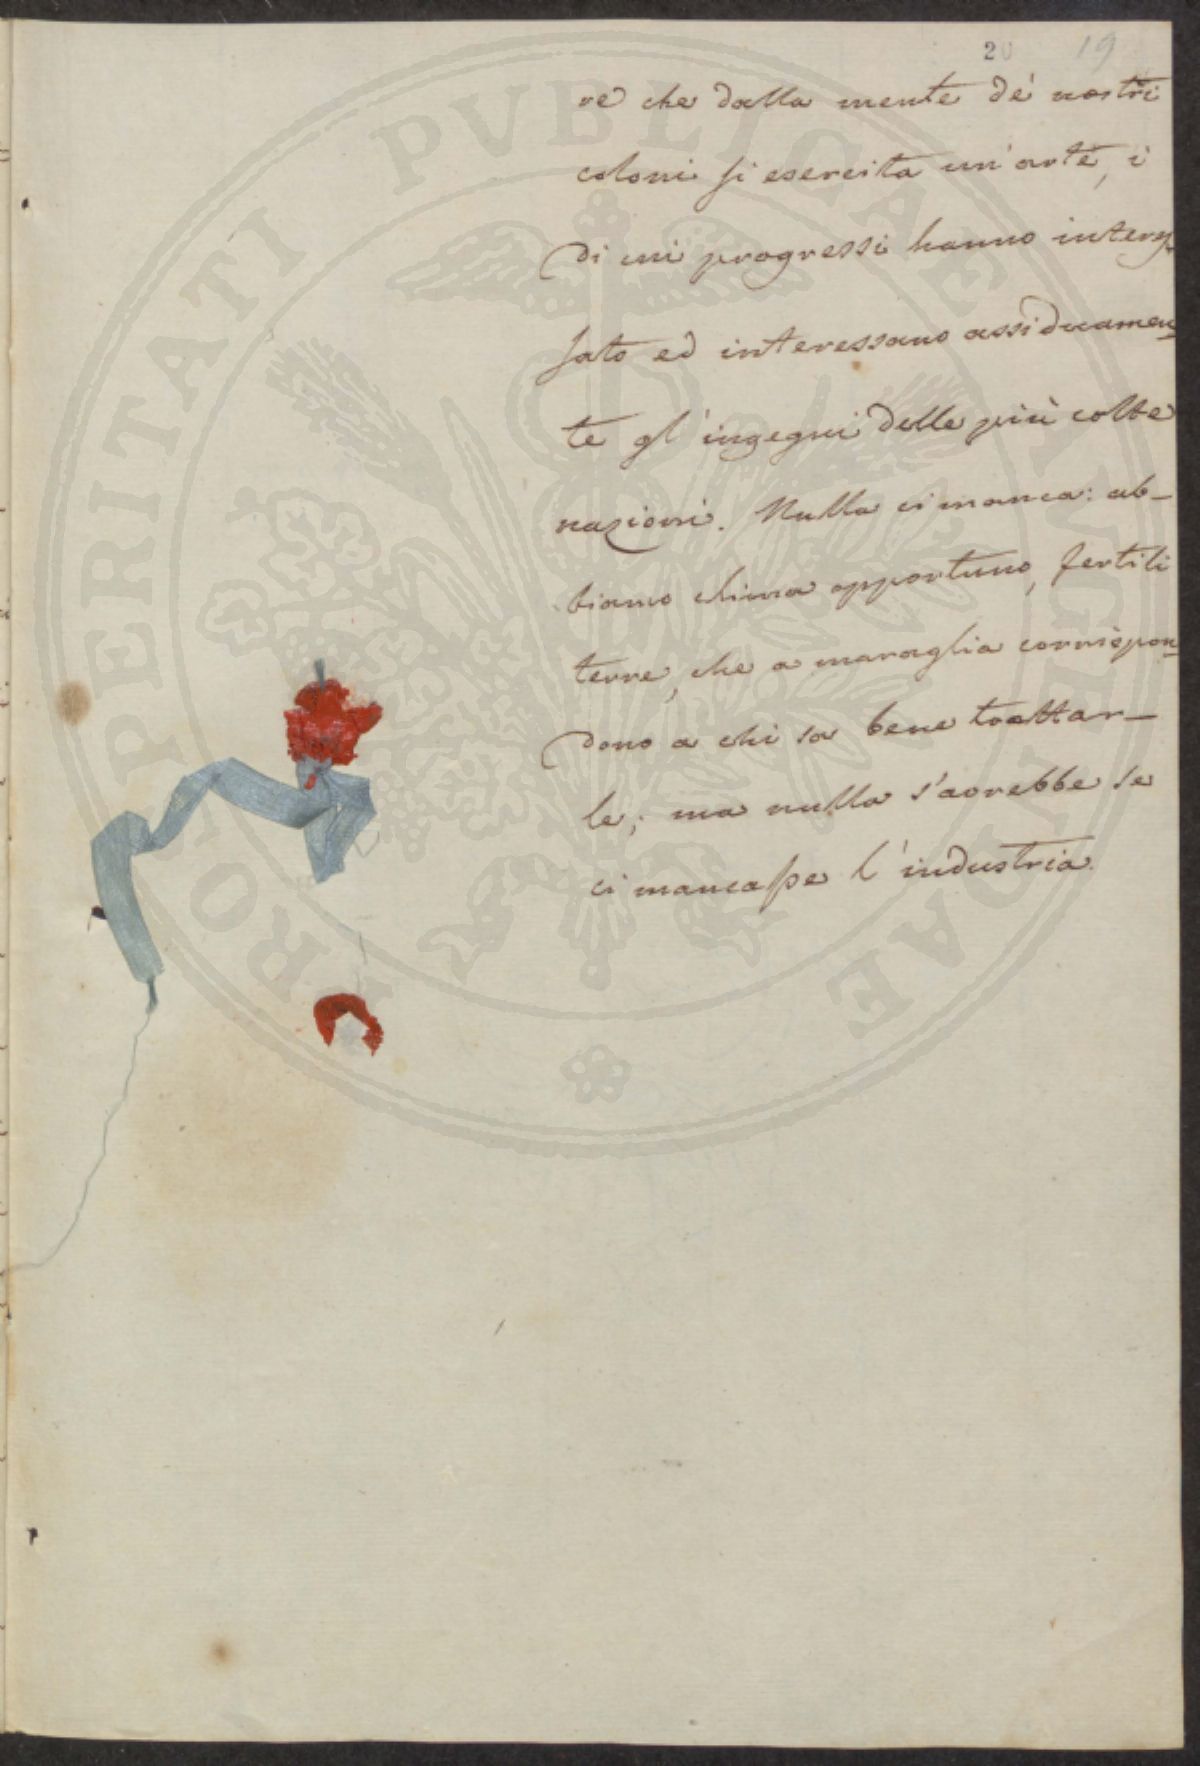 20 19
re che dalla mente de' nostri
coloni si esercita un'arte, i
di cui progressi hanno interes=
sato ed interessano assiduamen=
te gl'ingegni delle più colte
nazioni. Nulla ci manca: ab-
biamo clima opportuno, fertili
terre, che a maraglia corrispon=
dono a chi sa bene trattar-
le; ma nulla s'avrebbe se
ci mancasse l'industria.
PROSPERITATI PVBLICAE AVGENDAE